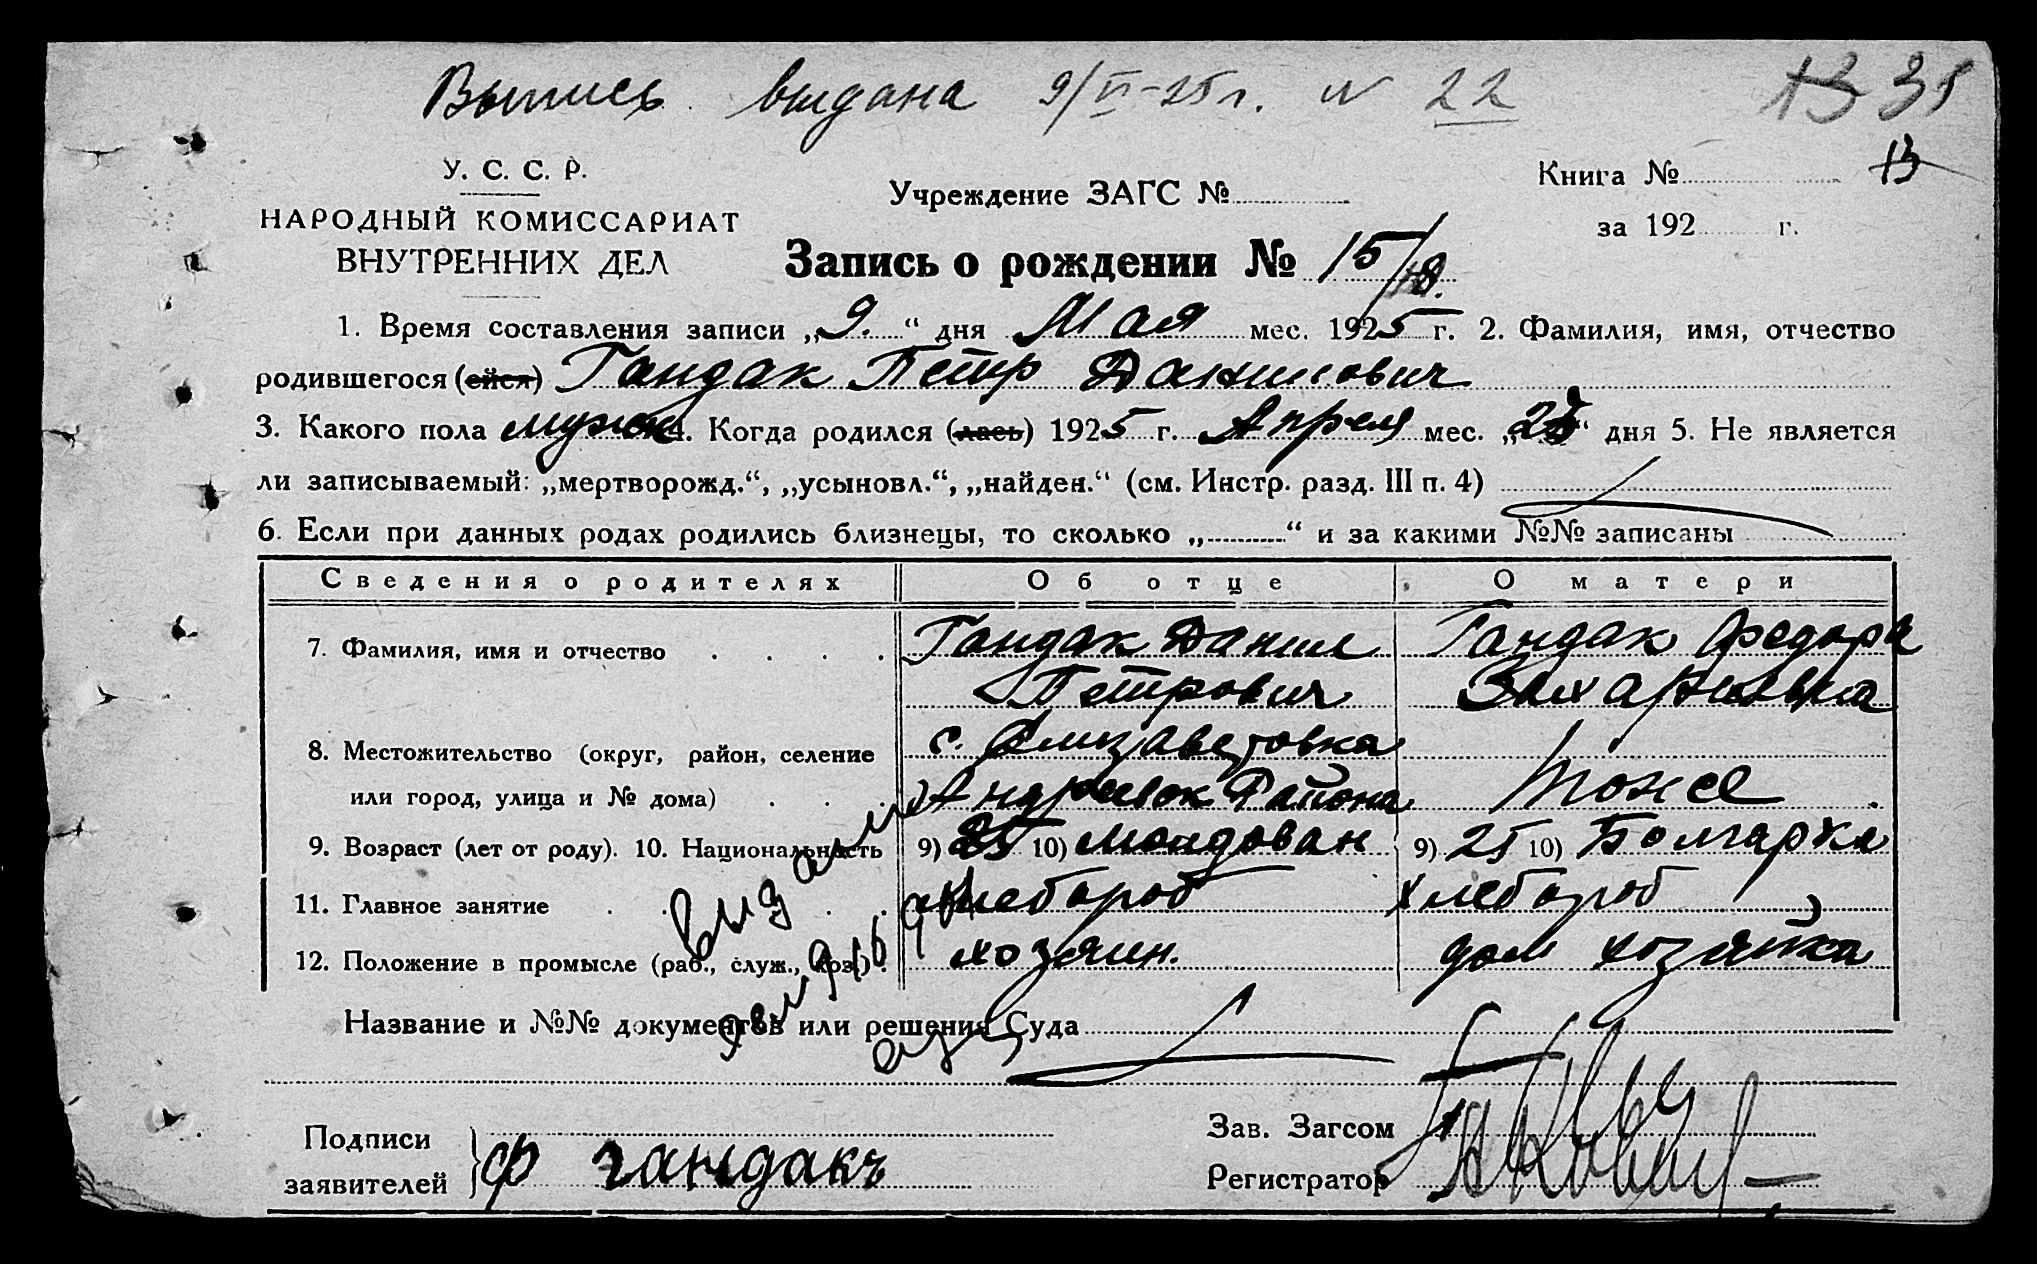 Выпись выдана 9/VI-25 г. N 22
35
13
У. С. С. Р.
НАРОДНЫЙ КОМИССАРИАТ
ВНУТРЕННИХ ДЕЛ
Учреждение ЗАГС №
Книга №
за 192 г.
Запись о рождении № 15/8.
1. Время составления записи „9.“ дня Мая мес. 1925 г. 2. Фамилия, имя, отчество
родившегося (ейся) Гандак Петр Данилович
3. Какого пола мужск 4. Когда родился (лась) 1925 г. Апреля мес. „ “ дня 5. Не является
ли записываемый: „мертворожд.“, „усыновл.“, „найден.“ (см. Инстр. разд. III п. 4)
6. Если при данных родах родились близнецы, то сколько „ “ и за какими №№ записаны
Сведения о родителях Об отце О матери
7. Фамилия, имя и отчество Гандак Данил Гандак Федора
Петрович Захарьевна
8. Местожительство (округ, район, селение с. Елизаветовка
или город, улица и № дома) Андреевск Района тоже
9. Возраст (лет от роду). 10. Национальность 9) 25 10) Молдован 9) 25 10) Болгарка
11. Главное занятие хлебороб хлебороб
12. Положение в промысле (раб., служ., хоз.) хозяин. дом хозяйка
выдали
Название и №№ документов или решения Суда
Подписи
заявителей ф гандакъ
Зав. Загсом
Регистратор